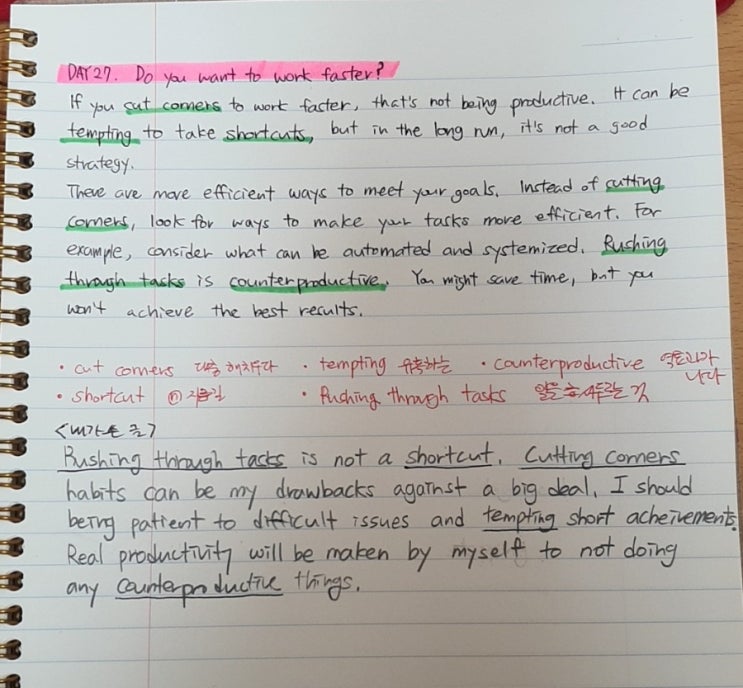 DAY 27. Do you want to work faster?
If you cut corners to work faster, that's not being productive. It can be
tempting to take shortcuts, but in the long run, it's not a good
strategy.
There are more efficient ways to meet your goals. Instead of cutting
corners, look for ways to make your tasks more efficient. For
example, consider what can be automated and systemized. Rushing
through tasks is counterproductive. You might save time, but you
won't achieve the best results.
• cut corners 대충 해치우다 • tempting 유혹하는 • counterproductive 역효과가
나다
• shortcut ⓝ 지름길 • Rushing through tasks 일을 서두르는 것
<내가 쓴 글>
Rushing through tasks is not a shortcut. Cutting corners
habits can be my drawbacks against a big deal. I should
being patient to difficult issues and tempting short acheivements.
Real productivity will be maken by myself to not doing
any counterproductive things.